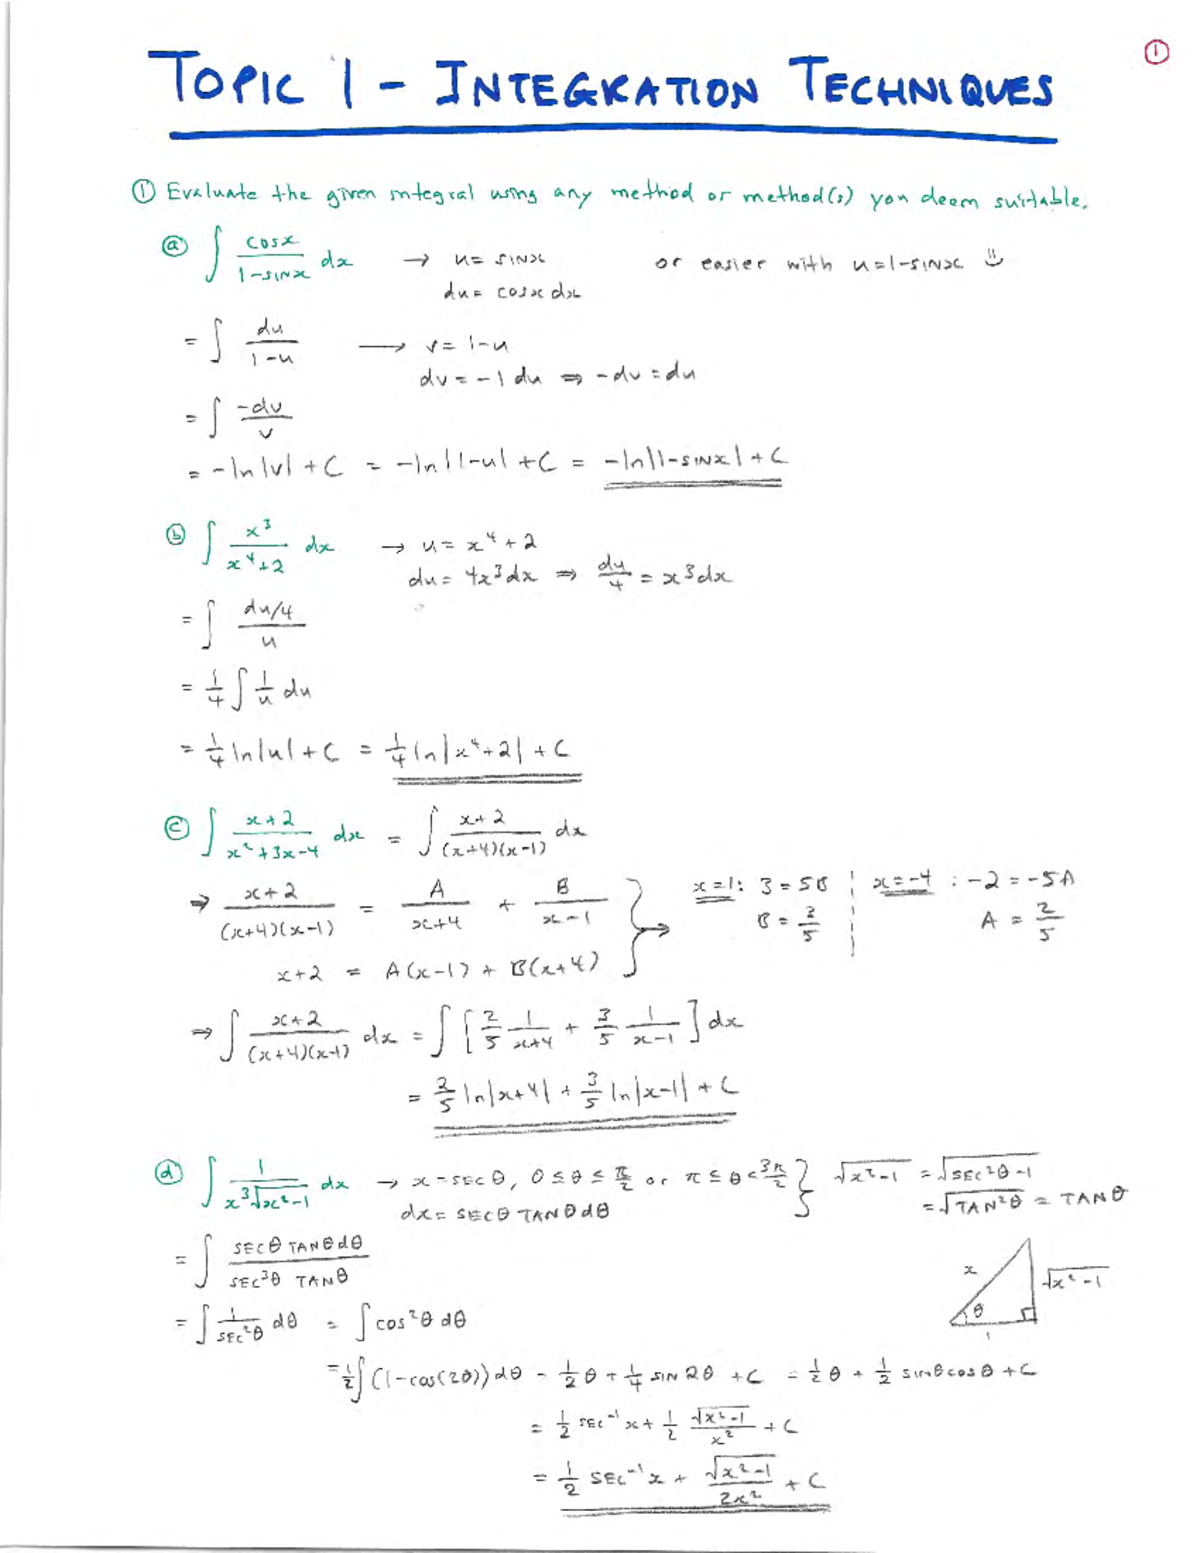 ①
TOPIC 1 - INTEGRATION TECHNIQUES
① Evaluate the given integral using any method or method(s) you deem suitable.
ⓐ ∫ cosx/(1-sinx) dx → u = sinx or easier with u=1-sinx ☺
du = cosx dx
= ∫ du/(1-u) → v = 1-u
dv = -1 du ⇒ -dv = du
= ∫ -dv/v
= -ln|v| + C = -ln|1-u| + C = -ln|1-sinx| + C
ⓑ ∫ x³/(x⁴+2) dx → u = x⁴+2
du = 4x³dx ⇒ du/4 = x³dx
= ∫ (du/4)/u
= 1/4 ∫ 1/u du
= 1/4 ln|u| + C = 1/4 ln|x⁴+2| + C
ⓒ ∫ (x+2)/(x²+3x-4) dx = ∫ (x+2)/((x+4)(x-1)) dx
⇒ (x+2)/((x+4)(x-1)) = A/(x+4) + B/(x-1) } → x=1: 3 = 5B | x=-4: -2 = -5A
B = 3/5 | A = 2/5
x+2 = A(x-1) + B(x+4)
⇒ ∫ (x+2)/((x+4)(x-1)) dx = ∫ [2/5 1/(x+4) + 3/5 1/(x-1)] dx
= 2/5 ln|x+4| + 3/5 ln|x-1| + C
ⓓ ∫ 1/(x³√(x²-1)) dx → x = SEC θ, 0 ≤ θ ≤ π/2 or π ≤ θ < 3π/2 } √(x²-1) = √(SEC²θ-1)
dx = SECθ TANθ dθ = √(TAN²θ) = TANθ
= ∫ SECθ TANθ dθ/(SEC³θ TANθ)
x √(x²-1)
θ
1
= ∫ 1/SEC²θ dθ = ∫ cos²θ dθ
= 1/2 ∫ (1-cos(2θ)) dθ = 1/2 θ + 1/4 SIN 2θ + C = 1/2 θ + 1/2 sinθcosθ + C
= 1/2 SEC⁻¹x + 1/2 √(x²-1)/x² + C
= 1/2 SEC⁻¹x + √(x²-1)/(2x²) + C